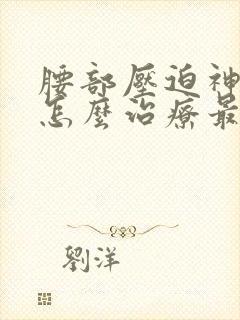 腰部壓迫神
怎麼治療最
劉洋